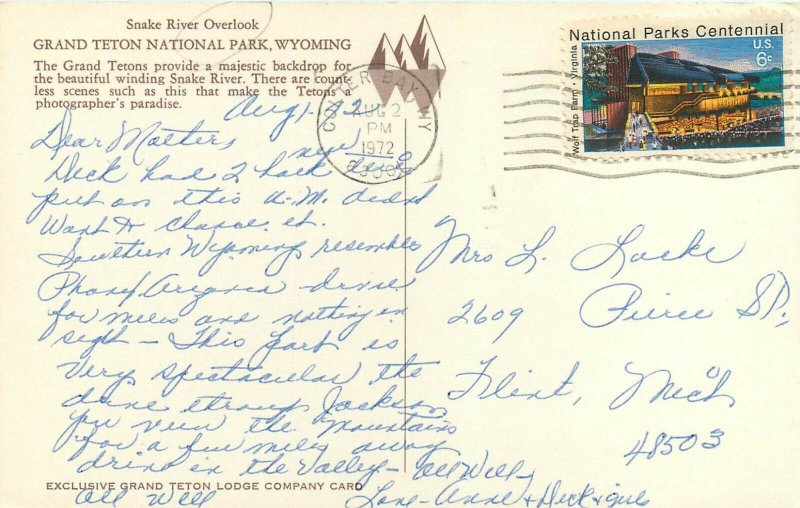 Snake River Overlook
GRAND TETON NATIONAL PARK, WYOMING
The Grand Tetons provide a majestic backdrop for
the beautiful winding Snake River. There are count-
less scenes such as this that make the Tetons a
photographer's paradise.
National Parks Centennial
U.S.
6c
Wolf Trap Farm · Virginia
COLTER BAY WY
AUG 2
PM
1972
Aug 1-72
Dear
new
Deck had 2 back
put on this A.M. didnt
Want to chance it.
Southern Wyoming resembles
drive
for miles and nothing in
sight - This part is
very spectacular the
drive through Jackson
you view the Mountains
for a few miles away
driving in the Valley - All Well
All Well
Love - Anne + Deck + girls
Mrs L. Locke
2609 Pierce St,
Flint, Mich
48503
EXCLUSIVE GRAND TETON LODGE COMPANY CARD